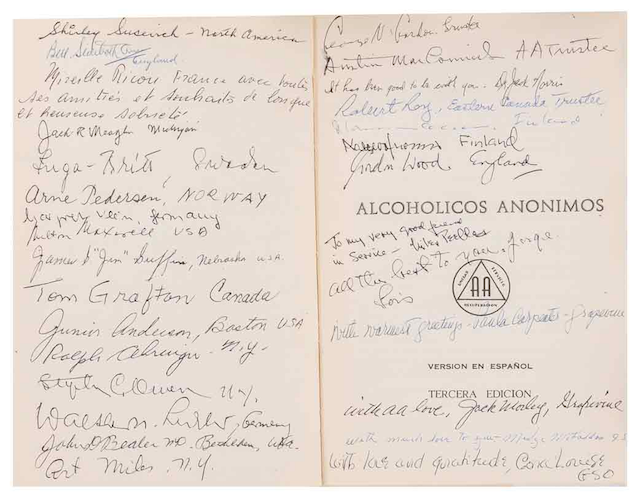 Shirley - North America
Bill
England
Mireille Ricou France avec toutes
ses amitiés et souhaits de longue
et heureuse sobriété.
Jack R Meagher Michigan
Inga-Britt, Sweden
Arne Pedersen, NORWAY
Germany
Milton Maxwell USA
James D "Jim" Nebraska USA.
Tom Grafton Canada
Junior Anderson, Boston USA
Ralph N.Y.
Stephen C. Owen N.Y.
Germany
John D Bealer MD. Bethlehem, USA.
Art Miles, N.Y.
George N. Gordon Trustee
Austin MacCormick AA Trustee
It has been good to be with you. Dr Jack Norris
Robert Roy, Eastern Canada Trustee
Finland
Finland
Gordon Wood. England
ALCOHOLICOS ANONIMOS
To my very good friend
in Service -
all the best to you, Jorge.
Lois
AA
With warmest greetings - Paula Carpenter - Grapevine
VERSION EN ESPAÑOL
TERCERA EDICION
with aa love, Jack Mosley, Grapevine
with much love to you Midge
With love and gratitude, Cora Louise
GSO